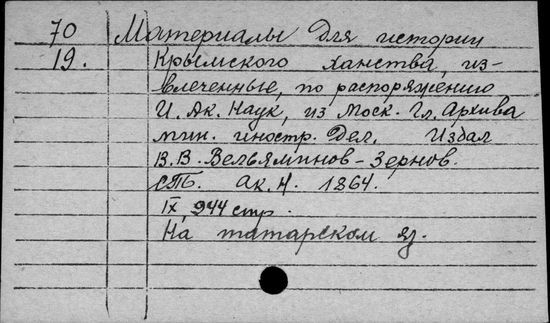 70 Материалы для истории
19. Крымского ханства, из-
влеченные, по распоряжению
И. Ак. Наук, из Моск. Гл. Архива
мин. иностр. Дел. Издал
В. В. Вельяминов-Зернов.
СПБ. Ак. Н. 1864.
IX, 944 стр.
На татарском яз.